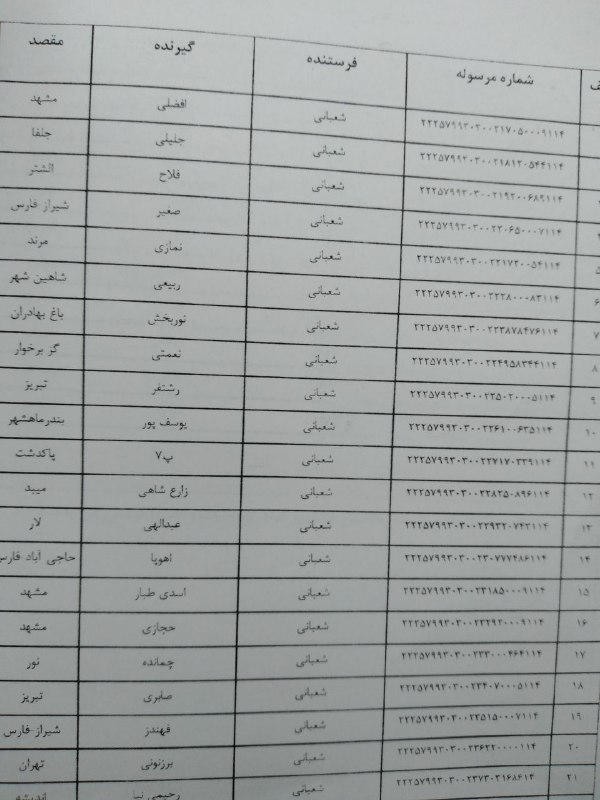 ف شماره مرسوله فرستنده گیرنده مقصد
۲۲۲۵۷۹۹۳۰۳۰۰۲۱۷۰۵۰۰۰۹۱۱۴ شعبانی افضلی مشهد
۲۲۲۵۷۹۹۳۰۳۰۰۲۱۸۱۲۰۵۴۴۱۱۴ شعبانی جلیلی جلفا
۲۲۲۵۷۹۹۳۰۳۰۰۲۱۹۲۰۰۶۸۹۱۱۴ شعبانی فلاح الشتر
۲۲۲۵۷۹۹۳۰۳۰۰۲۲۰۶۵۰۰۰۷۱۱۴ شعبانی صغیر شیراز فارس
۵ ۲۲۲۵۷۹۹۳۰۳۰۰۲۲۱۷۲۰۰۵۴۱۱۴ شعبانی نمازی مرند
۶ ۲۲۲۵۷۹۹۳۰۳۰۰۲۲۲۸۰۰۰۸۳۱۱۴ شعبانی ربیعی شاهین شهر
۷ ۲۲۲۵۷۹۹۳۰۳۰۰۲۲۳۸۷۸۴۷۶۱۱۴ شعبانی نوربخش باغ بهادران
۸ ۲۲۲۵۷۹۹۳۰۳۰۰۲۲۴۹۵۸۳۴۴۱۱۴ شعبانی نعمتی گز برخوار
۹ ۲۲۲۵۷۹۹۳۰۳۰۰۲۲۵۰۲۰۰۰۵۱۱۴ شعبانی رشتفر تبریز
۱۰ ۲۲۲۵۷۹۹۳۰۳۰۰۲۲۶۱۰۰۶۳۵۱۱۴ شعبانی یوسف پور بندرماهشهر
۱۱ ۲۲۲۵۷۹۹۳۰۳۰۰۲۲۷۱۷۰۳۳۹۱۱۴ شعبانی پ۷ پاکدشت
۱۲ ۲۲۲۵۷۹۹۳۰۳۰۰۲۲۸۲۵۰۸۹۶۱۱۴ شعبانی زارع شاهی میبد
۱۳ ۲۲۲۵۷۹۹۳۰۳۰۰۲۲۹۳۲۰۷۴۳۱۱۴ شعبانی عبدالهی لار
۱۴ ۲۲۲۵۷۹۹۳۰۳۰۰۲۳۰۷۷۷۴۸۶۱۱۴ شعبانی اهوپا حاجی آباد فارس
۱۵ ۲۲۲۵۷۹۹۳۰۳۰۰۲۳۱۸۵۰۰۰۹۱۱۴ شعبانی اسدی طبار مشهد
۱۶ ۲۲۲۵۷۹۹۳۰۳۰۰۲۳۲۹۲۰۰۰۹۱۱۴ شعبانی حجازی مشهد
۱۷ ۲۲۲۵۷۹۹۳۰۳۰۰۲۳۳۰۰۰۴۶۴۱۱۴ شعبانی چمانده نور
۱۸ ۲۲۲۵۷۹۹۳۰۳۰۰۲۳۴۰۷۰۰۰۵۱۱۴ شعبانی صابری تبریز
۱۹ ۲۲۲۵۷۹۹۳۰۳۰۰۲۳۵۱۵۰۰۰۷۱۱۴ شعبانی قهندز شیراز-فارس
۲۰ ۲۲۲۵۷۹۹۳۰۳۰۰۲۳۶۲۲۰۰۰۰۱۱۴ شعبانی برزنونی تهران
۲۱ ۲۲۲۵۷۹۹۳۰۳۰۰۲۳۷۳۰۳۱۶۸۶۱۴ شعبانی رحیمی نیا اندیشه